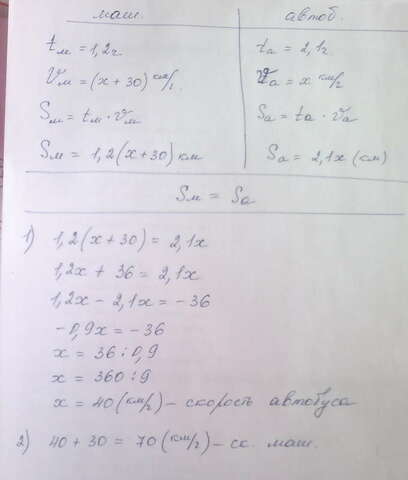 маш. автоб.
tм = 1,2ч tа = 2,1ч.
Vм = (x + 30) км/ч Vа = x км/ч
Sм = tм · Vм Sа = tа · Vа
Sм = 1,2(x + 30) км Sа = 2,1x (км)
Sм = Sа
1) 1,2(x + 30) = 2,1x
1,2x + 36 = 2,1x
1,2x - 2,1x = -36
-0,9x = -36
x = 36 : 0,9
x = 360 : 9
x = 40 (км/ч) - скорость автобуса
2) 40 + 30 = 70 (км/ч) - ск. маш.